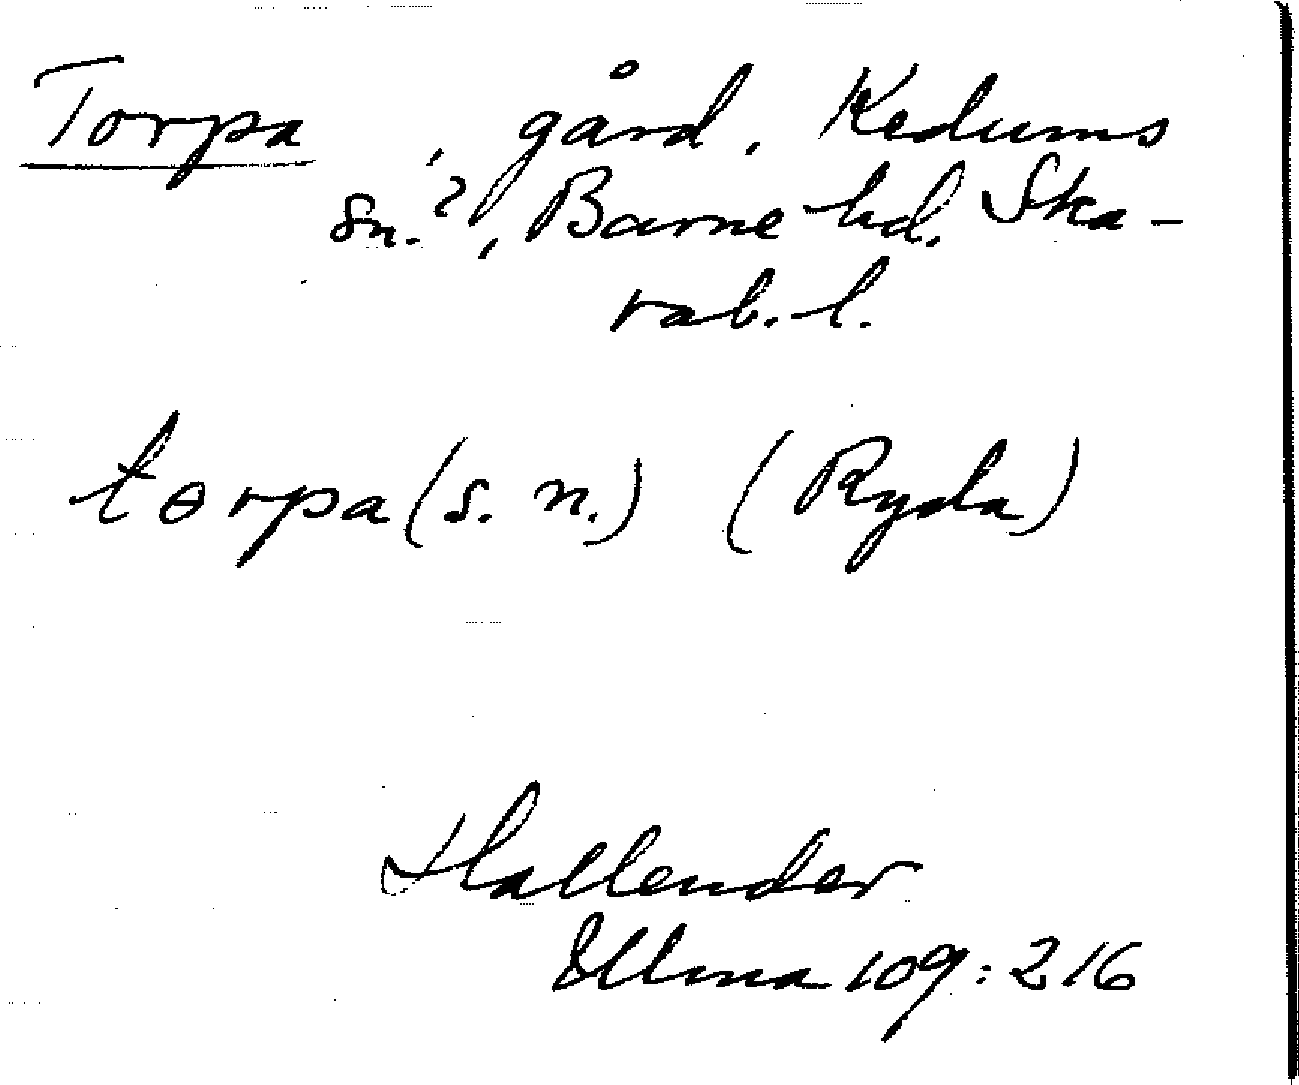 Torpa , gård. Kedums
sn.?, Barne hd. Ska-
rab. l.
tɵrpa (s. n.) (Ryda)
Hallender
Ullma 109:216